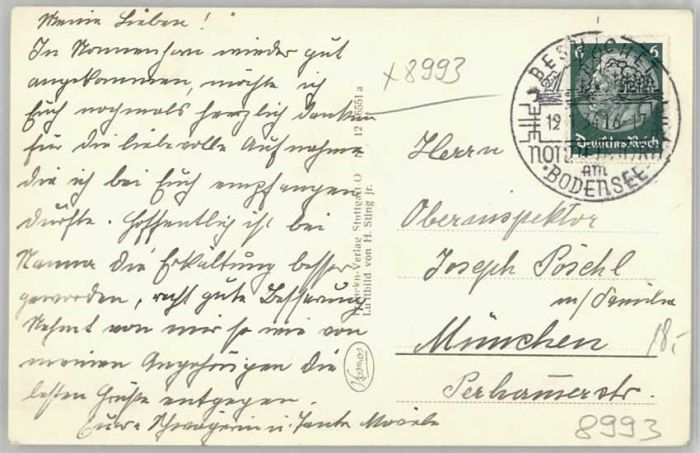 Meine Lieben!
In Nonnenhorn wieder gut
angekommen, möchte ich
Euch nochmals herzlich danken
für die liebevolle Aufnahme
die ich bei Euch empfangen
durfte. Hoffentlich ist bei
Mamma die Erkältung besser
geworden, recht gute Besserung
Nehmt von mir so wie von
meinen Angehörigen die
besten Grüße entgegen.
Eure Schwägerin u. Tante
x8993
6 6
Deutsches Reich
BESUCHET
NONNENHORN
am
BODENSEE
Herrn
Oberinspektor
Joseph Pöschl
m/Familie
München
18.-
Perhamerstr.
8993
-Verlag Stuttgart O
Luftbild von H. Sting jr.
Kosmos